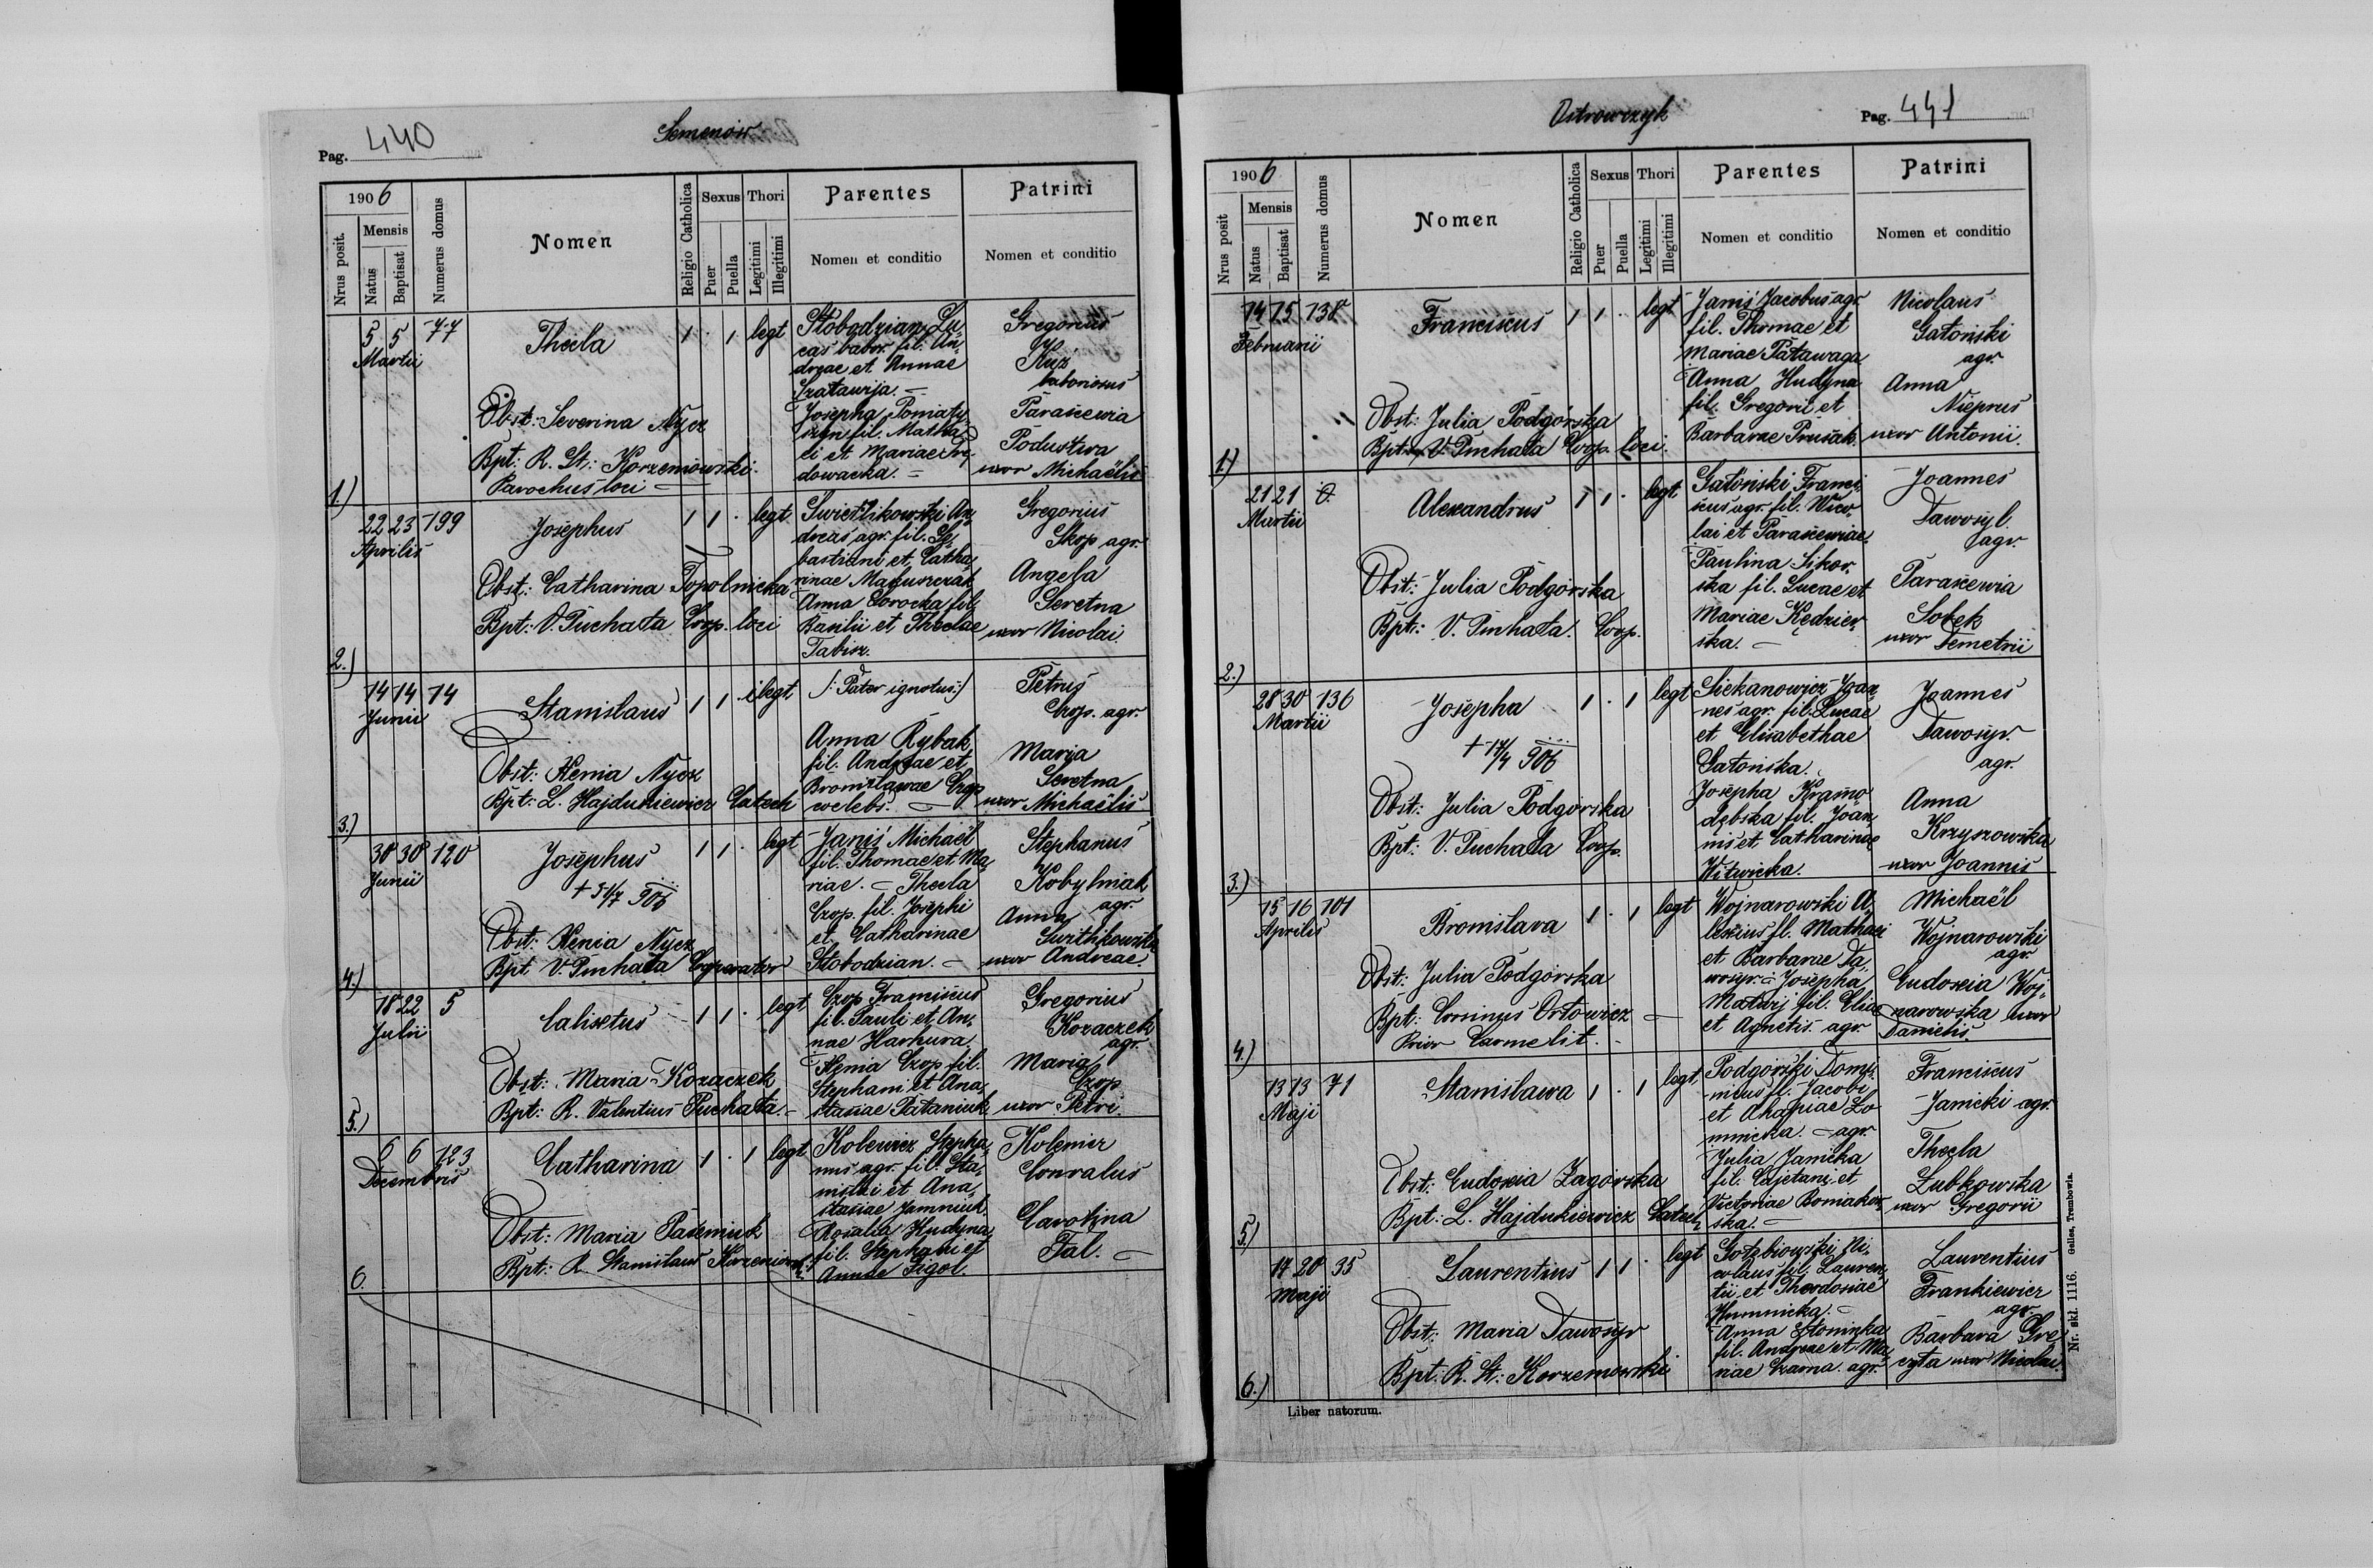 Pag. 440
Semenów
1906
Nrus posit.
Mensis
Natus
Baptisat
Numerus domus
Nomen
Religio Catholica
Sexus
Puer
Puella
Thori
Legitimi
Illegitimi
Parentes
Nomen et conditio
Patrini
Nomen et conditio
1.)
5 5 77
Martii
Thecla
1 . 1 legt
Obst: Severina Nycz
Bpt: R. St: Korzeniowski
Parochus loci
Słobodzian Lu-
cas labor. fil. An-
dreae et Annae
Szatawija.
Josepha Poniaty-
szyn fil. Matha-
ei et Mariae
dowacka.
Gregorius
Kuź
laboriosus
Parascewia
Podustwa
uxor Michaëlis
2.)
22 23 199
Aprilis
Josephus
1 1 . legt
Obst: Catharina Topolnicka
Bpt: V. Puchała Coop. loci
Swierlikowski An-
dreas agr. fil. Se-
bastiani et Catha-
rinae Matuszczak
Anna Sorocka fil.
Basilii et Theclae
Tabisz.
Gregorius
Skop agr.
Angela
Seretna
uxor Nicolai
3.)
14 14 74
Junii
Stanislaus
1 1 . ilegt
Obst: Xenia Nycz
Bpt: L. Hajdukiewicz Catech
/: Pater ignotus :/
Anna Rybak
fil. Andreae et
Bronislawae Czop
coelebs.
Petrus
Czop. agr.
Maria
Seretna
uxor Michaëlis
4.)
30 30 120
Junii
Josephus
+ 31/7 906
1 1 . legt
Obst: Xenia Nycz
Bpt V. Puchała Cooperator
Janiś Michaël
fil. Thomae et Ma-
riae. Thecla
Czop. fil. Josephi
et Catharinae
Słobodzian.
Stephanus
Kobylniak
agr.
Anna
uxor Andreae.
5.)
18 22 5
Julii
Calixtus
1 1 . legt
Obst: Maria Kozaczek
Bpt: R. Valentius Puchała.
Czop Franciscus
fil. Pauli et An-
nae Harhura
Xenia Czop fil.
Stephani et Ana-
stasiae Pataniuk
Gregorius
Kozaczek
agr.
Maria
Czop
uxor Petri.
6
6 6 123
Decembris
Catharina
1 . 1 legt
Obst: Maria
Bpt: R. Stanislaus Korzeniowski
Kolewicz Stepha-
nus agr. fil. Sta-
nislai et Ana-
stasiae Jamniuk.
Rosalia Hudyna
fil. Stephani et
Annae Gigol.
Kolewicz
Conralus
Carolina
Fal.
Ostrowczyk
Pag. 441
1906
Nrus posit
Mensis
Natus
Baptisat
Numerus domus
Nomen
Religio Catholica
Sexus
Puer
Puella
Thori
Legitimi
Illegitimi
Parentes
Nomen et conditio
Patrini
Nomen et conditio
1.)
14 15 138
Februarii
Franciscus
1 1 . legt
Obst: Julia Podgórska
Bpt: V. Puchała Coop. loci.
Janiś Jacobus agr.
fil. Thomae et
Mariae Patawaga
Anna Hudyna
fil. Gregorii et
Barbarae Prusak.
Nicolaus
Gatoński
agr.
Anna
Nieprus
uxor Antonii.
2.)
21 21
Martii
Alexandrus
1 1 . legt
Obst: Julia Podgórska
Bpt: V. Puchała. Coop.
Satoński Franci-
scus agr. fil. Nico-
lai et Parascewiae
Paulina Sikor-
ska fil. Lucae et
Mariae Kędzier-
ska.
Joannes
Dawosyl.
agr.
Parascewia
Sobek
uxor Demetrii
3.)
28 30 136
Martii
Josepha
+ 14/4 906
1 . 1 legt
Obst: Julia Podgórska
Bpt: V. Puchała Coop.
Siekanowicz Joan-
nes agr. fil. Lucae
et Elisabethae
Satońska.
Josepha Kramo-
dębska fil. Joan-
nis et Catharinae
Witwicka.
Joannes
Dawosyr.
agr.
Anna
Krzyszowska
uxor Joannis
4.)
15 16 101
Aprilis
Bronislava
1 . 1 legt
Obst: Julia Podgórska
Bpt: Corsinus Orłowicz
Prior Carmelit.
Wojnarowski A-
lexius fl. Mathaei
et Barbarae Da-
wosyr. Josepha
Matwij fil. Eliae
et Agnetis. agr
Michaël
Wojnarowski
agr.
Eudoxia Woj-
narowska uxor
Danielis.
5.)
13 13 71
Maji
Stanislawa
1 . 1 legt
Obst: Eudoxia Zagórska
Bpt: L. Hajdukiewicz Catech
Podgórski Domi-
nicus fl. Jacobi
et Ahapiae Ło-
mnicka. agr.
Julia Janicka
fil. Cajetani et
Victoriae Romakow-
ska.
Franciscus
Janicki agr.
Thecla
Zubkowska
uxor Gregorii
6.)
14 20 35
Maji
Laurentius
1 1 . legt
Obst: Maria Dawosyr
Bpt: R. St: Korzeniowski
Gołębiowski Ni-
colaus fil. Lauren-
tii et Theodosiae
Humnicka.
Anna Słoninka
fil. Andreae et Ma-
riae Czarna. agr.
Laurentius
Frankiewicz
agr.
Barbara Gre-
czyła uxor Nicolai.
Liber natorum.
Nr. skł. 1116. Gelles, Trembowla.